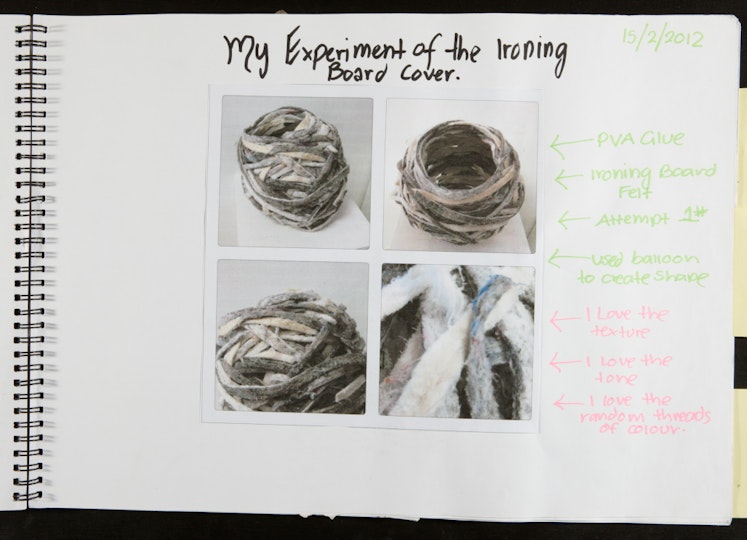 My Experiment of the Ironing
Board Cover.
15/2/2012
PVA Glue
Ironing Board
Felt
Attempt 1#
used balloon
to create shape
I Love the
texture
I love the
tone
I love the
random threads
of colour.